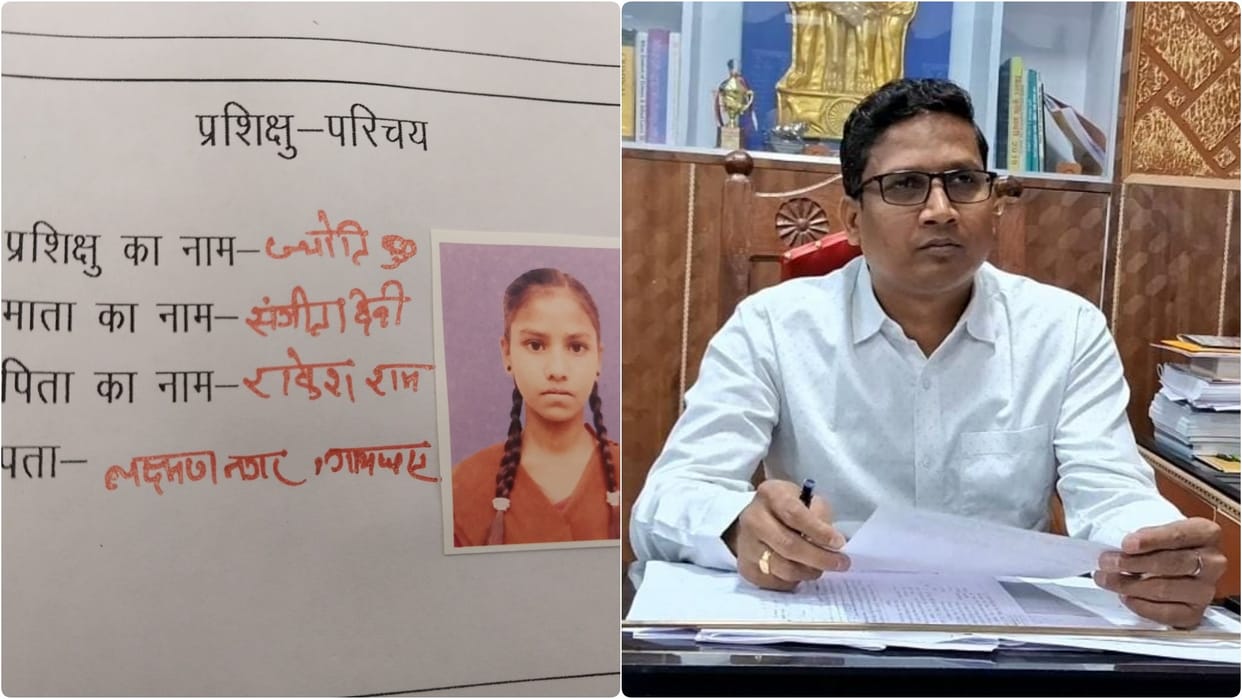 प्रशिक्षु-परिचय
प्रशिक्षु का नाम- ज्योति
माता का नाम- संगीता देवी
पिता का नाम- राकेश राम
पता- लक्ष्मण नगर,